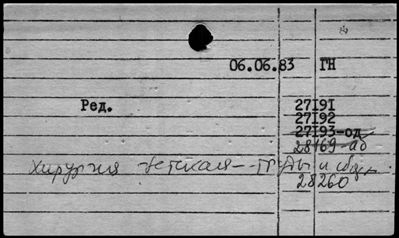 06.06.83 ГН
Ред. 27I9I
27I92
27I93-од
28169-ад
хирургия детская — труды и сборн.
28260